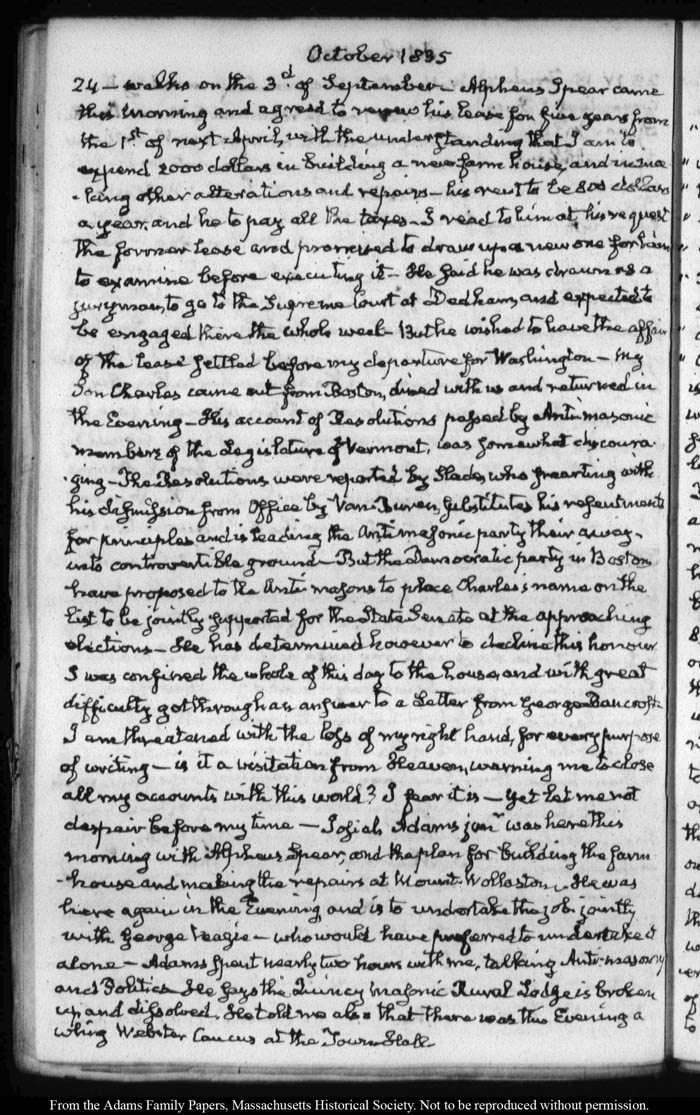 October 1835
24 — walks on the 3d. of September — Alpheus Spear came
this Morning and agreed to renew his lease for five years from
the 1st of next April, with the understanding that I am to
expend 2000 dollars in building a new farm house, and in ma
-king other alterations and repairs — his rent to be 800 dollars
a year, and he to pay all the taxes — I read to him at his request
the former lease and promised to draw up a new one for him
to examine before executing it — He said he was drawn as a
juryman, to go to the Supreme Court at Dedham, and expected to
be engaged there the whole week — But he wished to have the affair
of the lease settled before my departure for Washington — My
Son Charles came out from Boston, dined with us and returned in
the Evening — His account of Resolutions passed by Antimasonic
members of the Legislature of Vermont, was somewhat discoura
-ging — The Resolutions were reported by Slade, who smarting with
his dismission from Office by Van Buren, substitutes his resentments
for principles and is leading the Antimasonic party their away
into controvertible ground — But the Democratic party in Boston
have proposed to the Anti-masons to place Charles's name on the
list to be jointly supported for the State Senate at the approaching
elections — He has determined however to decline this honour
I was confined the whole of this day to the house, and with great
difficulty got through an answer to a Letter from George Bancroft
I am threatened with the loss of my right hand, for every purpose
of writing — is it a visitation from Heaven, warning me to close
all my accounts with this world? I fear it is — Yet let me not
despair before my time — Josiah Adams junr was here this
morning with Alpheus Spear, and the plan for building the farm
-house and making the repairs at Mount-Wollaston — He was
here again in the Evening and is to undertake the job jointly
with George Veazie — who would have preferred to undertake it
alone — Adams spent nearly two hours with me, talking Anti-masonry
and Politics — He says the Quincy Masonic Rural Lodge is broken
up and dissolved. He told me also that there was this Evening a
Whig Webster Caucus at the Town-Hall
From the Adams Family Papers, Massachusetts Historical Society. Not to be reproduced without permission.